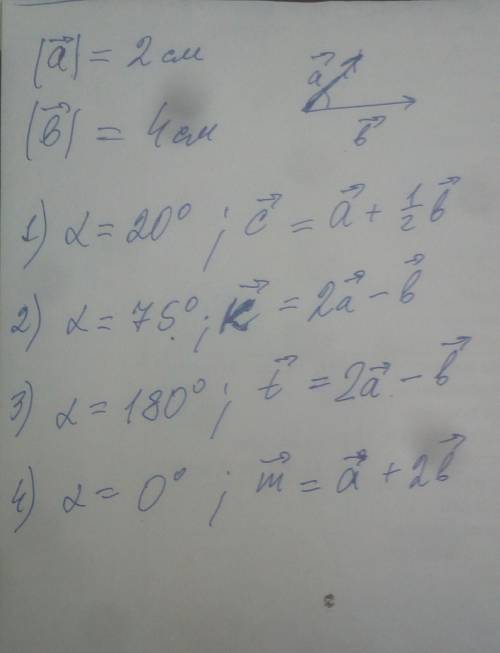 |a⃗| = 2 см
a⃗
|b⃗| = 4 см
b⃗
1) α = 20° ; c⃗ = a⃗ + 1/2 b⃗
2) α = 75° ; k⃗ = 2a⃗ − b⃗
3) α = 180° ; t⃗ = 2a⃗ − b⃗
4) α = 0° ; m⃗ = a⃗ + 2b⃗